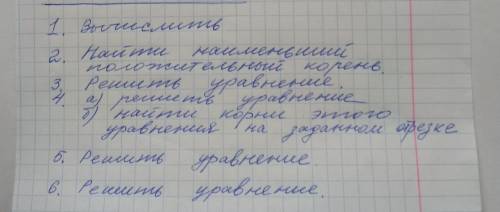 1. Вычислить
2. Найти наименьший
положительный корень.
3. Решить уравнение.
4. а) решить уравнение
б) найти корни этого
уравнения на заданном отрезке
5. Решить уравнение.
6. Решить уравнение.